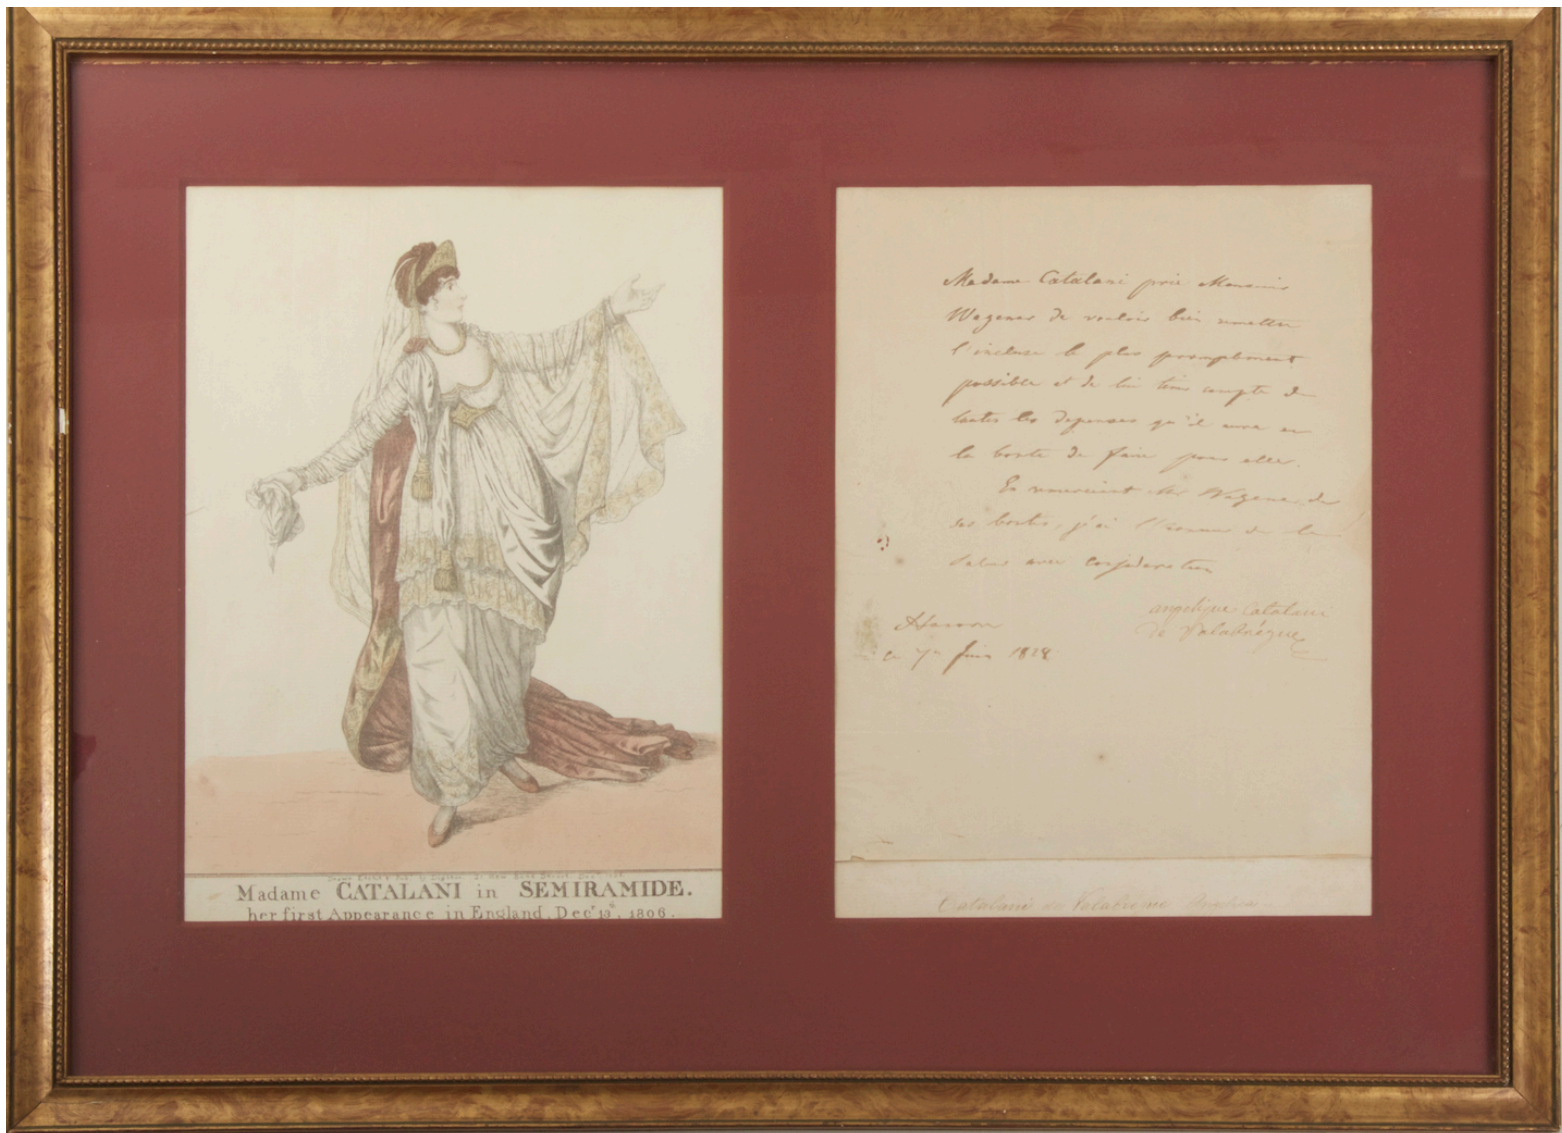 Madame CATALANI in SEMIRAMIDE.
her first Appearance in England, Decr. 13th, 1806.
Madame Catalani prie Monsieur
Wagener de vouloir bien remettre
l'incluse le plus promptement
possible et de lui tenir compte de
toutes les depenses qu'il aura eu
la bonté de faire pour elle.
En remerciant Mr Wagener de
ses bontés, j'ai l'honneur de le
saluer avec consideration
angelique Catalani
de Valabrégue
le 7 Juin 1828
Catalani de Valabregue